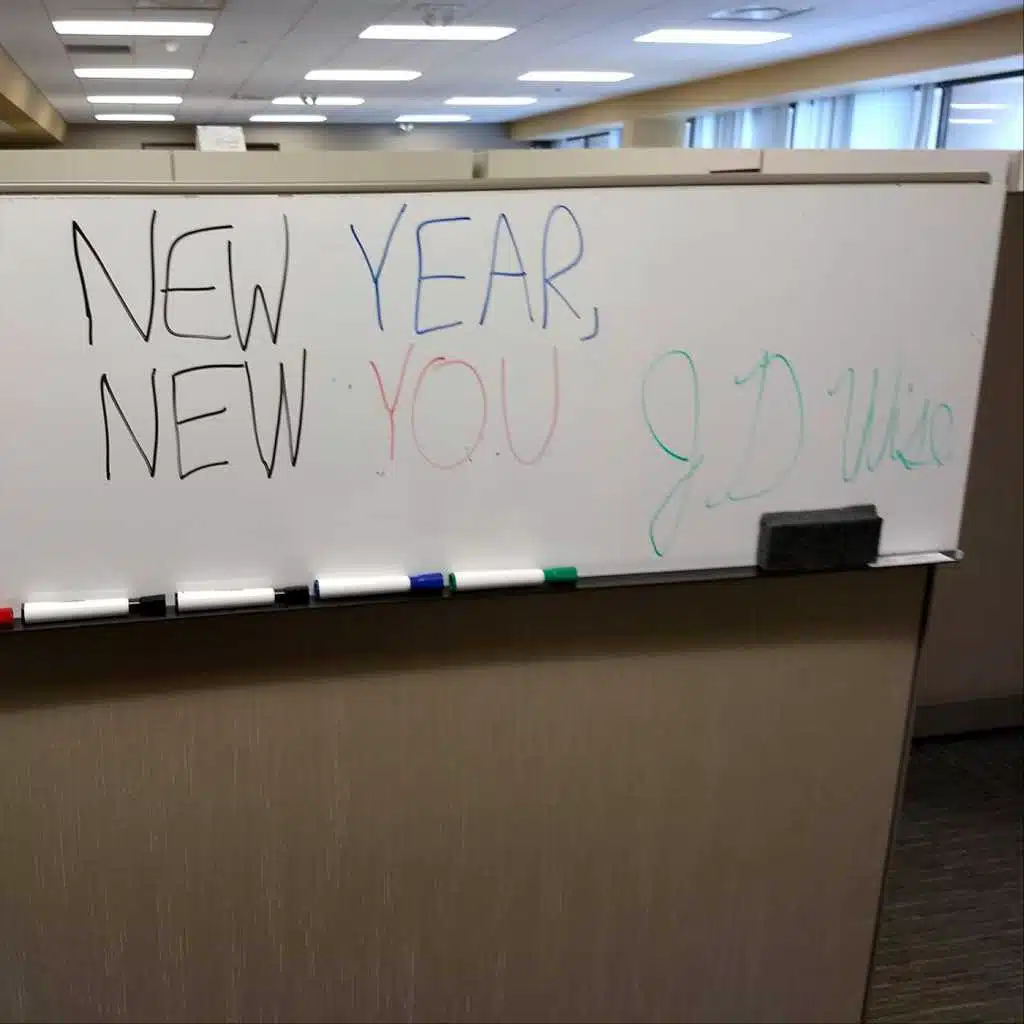 NEW YEAR,
NEW YOU
J D Wise